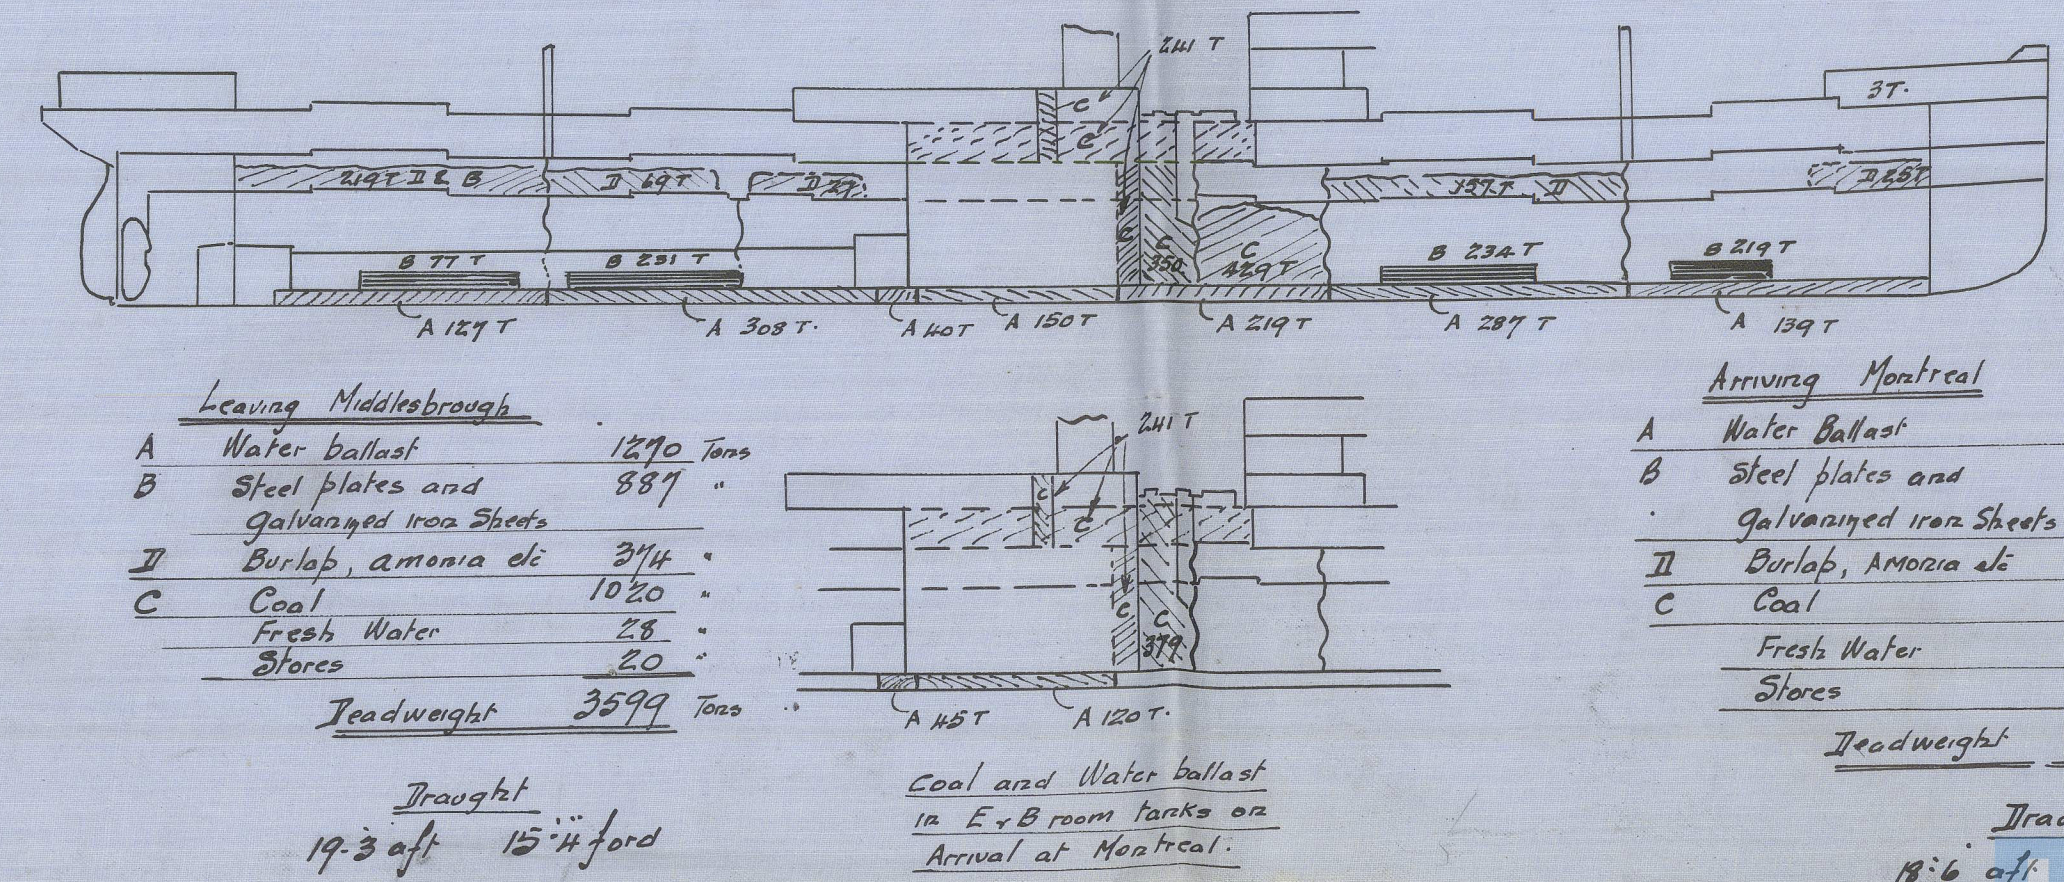 241 T
3T.
C
C
219T D & B
D 69T
D 29
157T D
D 25T
C
C
350
C
429T
B 77 T
B 231 T
B 234 T
B 219 T
A 127 T
A 308 T.
A 40T
A 150T
A 219 T
A 287 T
A 139 T
Leaving Middlesbrough
A Water ballast 1270 Tons
B Steel plates and 887 "
Galvanized iron Sheets
D Burlap, amonia etc 374 "
C Coal 1020 "
Fresh Water 28 "
Stores 20 "
Deadweight 3599 Tons
Draught
19-3 aft 15-4 ford
241 T
C
C
C
C
379
A 45T
A 120T.
Coal and Water ballast
in E & B room tanks on
Arrival at Montreal.
Arriving Montreal
A Water Ballast
B Steel plates and
Galvanized iron Sheets
D Burlap, Amonia etc
C Coal
Fresh Water
Stores
Deadweight
Drau
18:6 aft